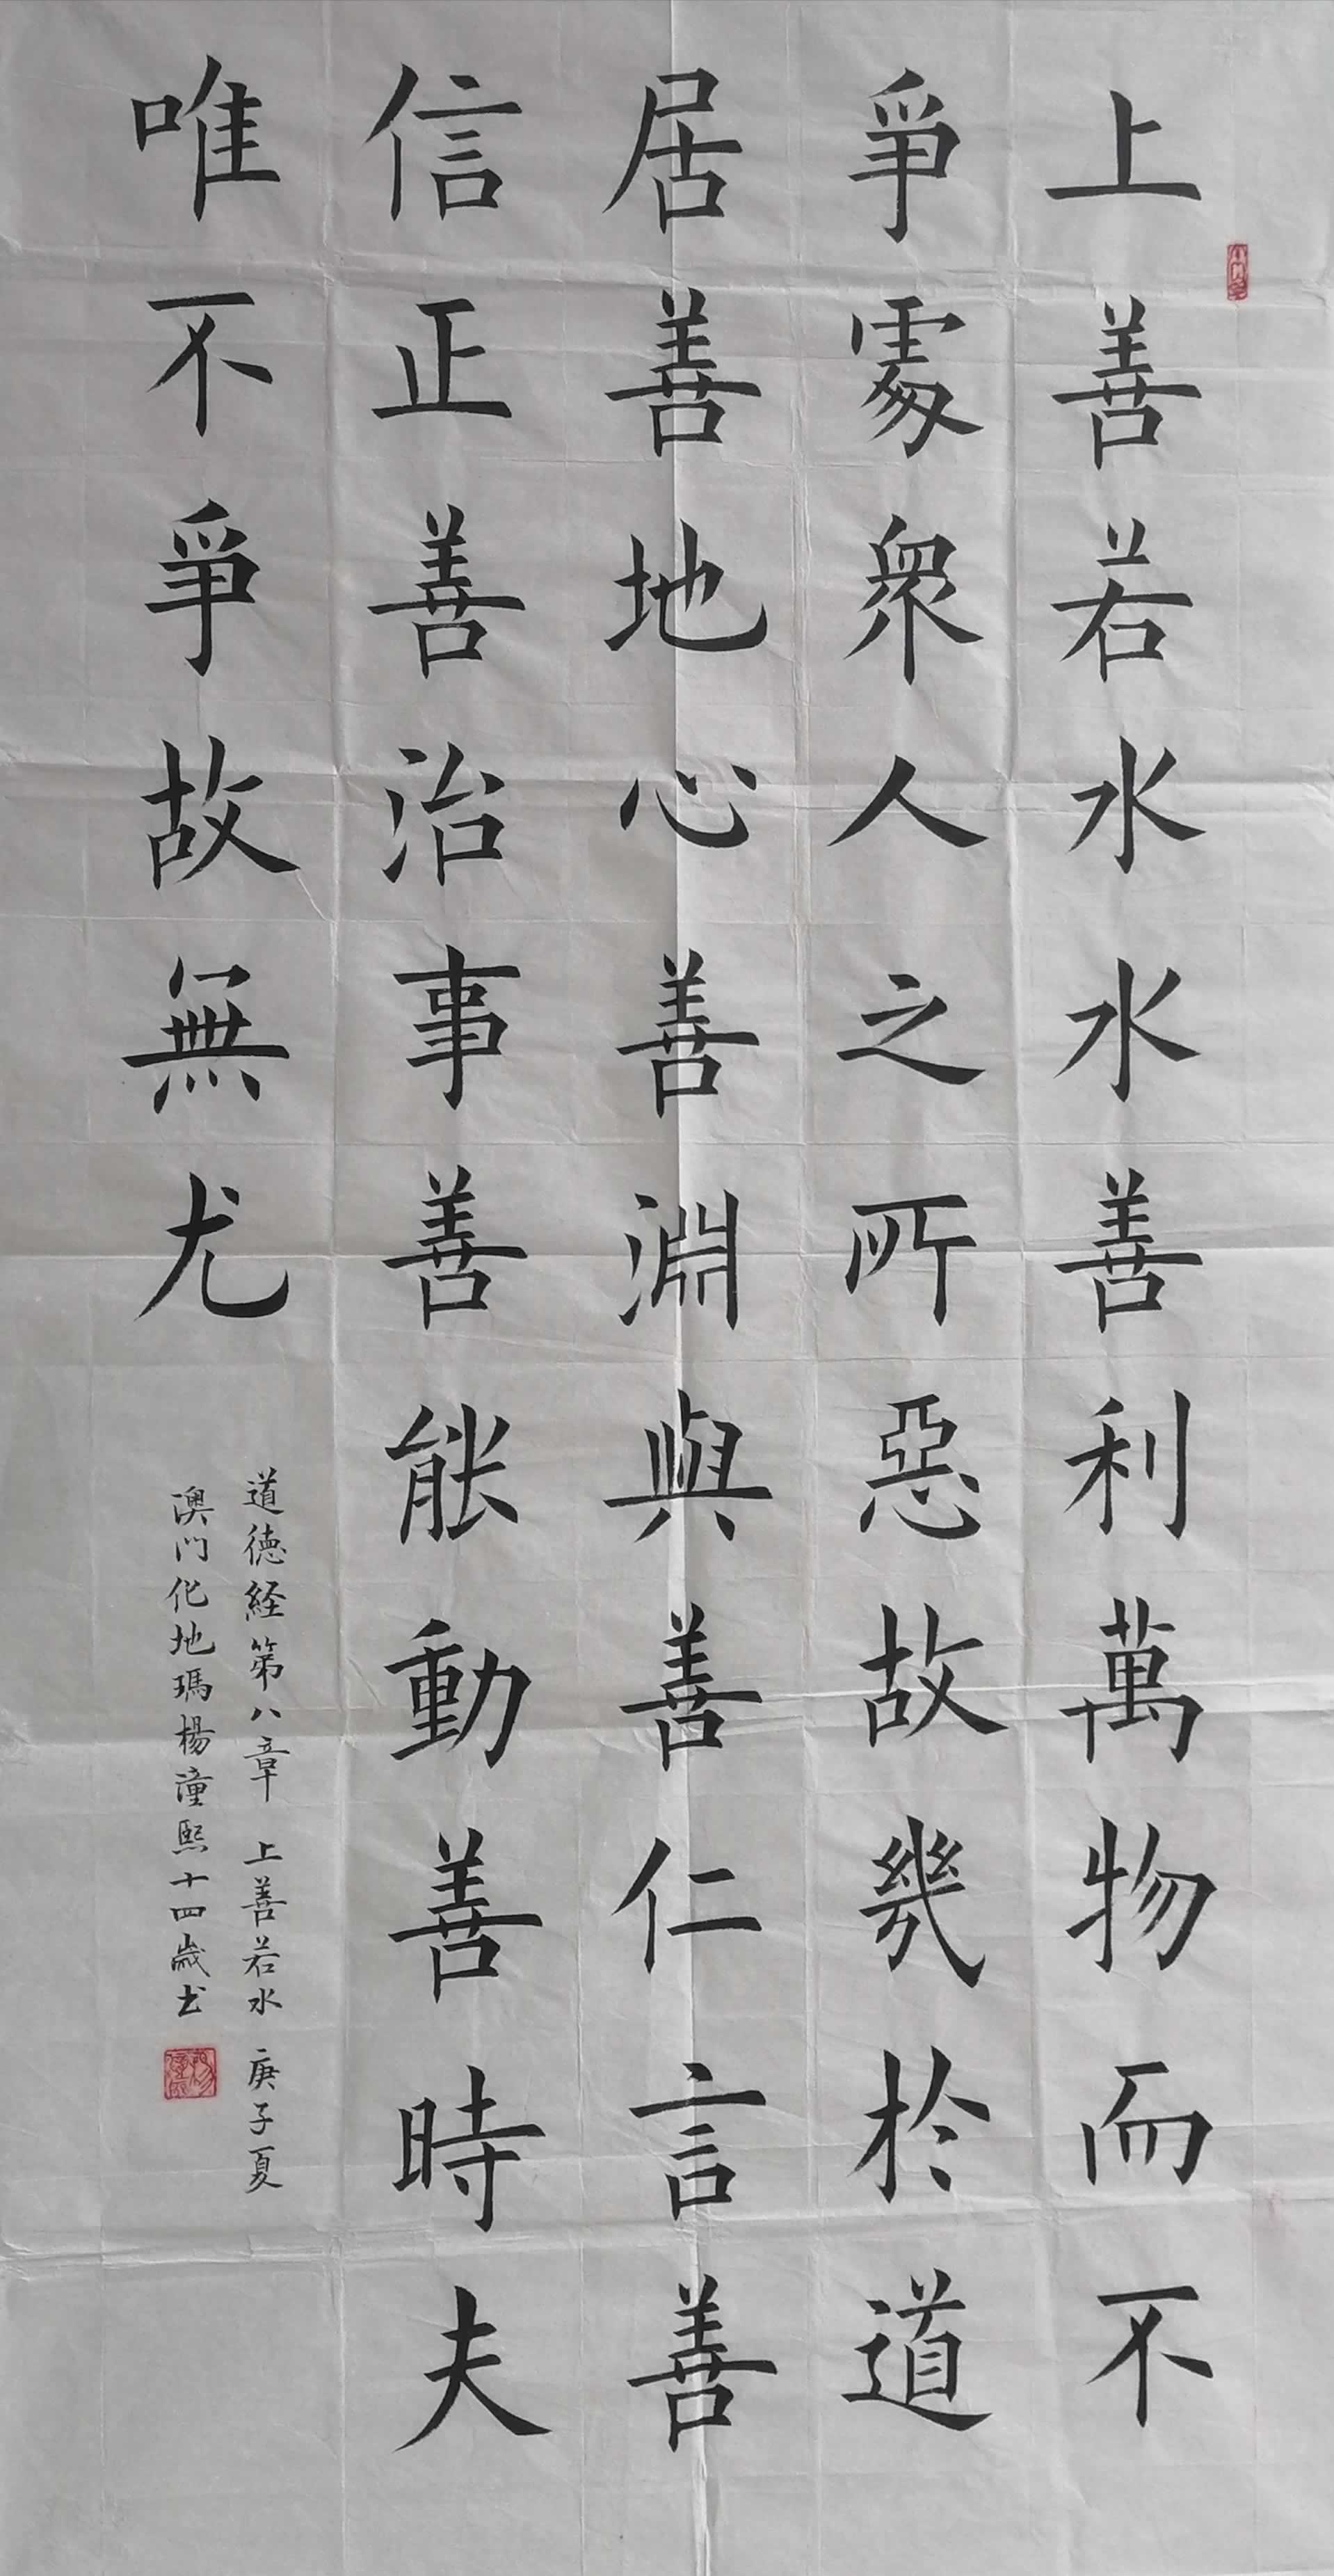 上善若水水善利萬物而不
爭處衆人之所惡故幾於道
居善地心善淵與善仁言善
信正善治事善能動善時夫
唯不爭故無尤
道德経第八章 上善若水 庚子夏
澳门化地瑪楊潼熙十四歲书